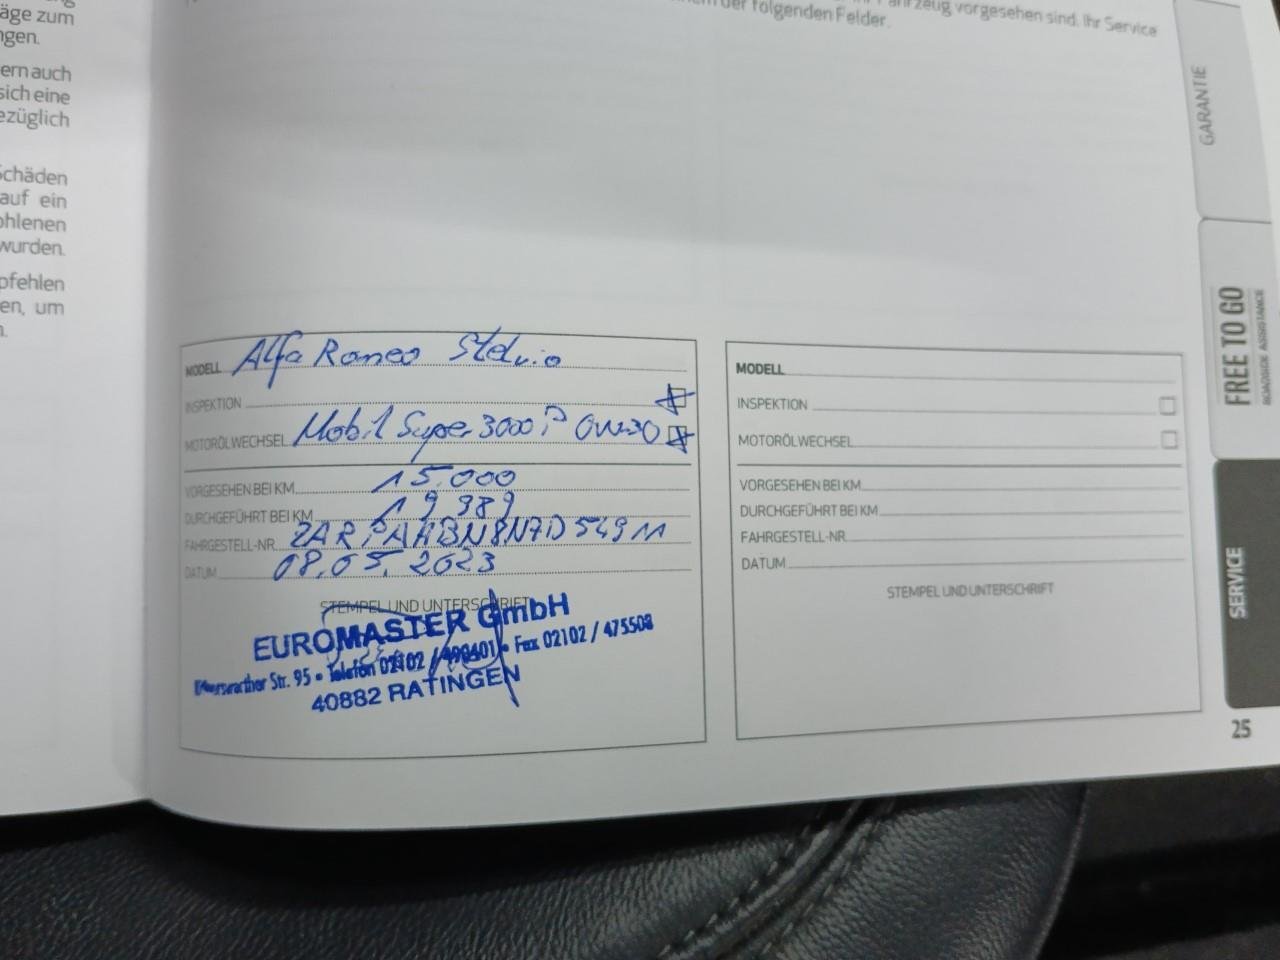 äge zum
ngen.
ern auch
sich eine
ezüglich
Schäden
auf ein
ohlenen
wurden.
pfehlen
en, um
n.
Fahrzeug vorgesehen sind. Ihr Service
der folgenden Felder.
MODELL Alfa Romeo Stelvio
INSPEKTION
MOTORÖLWECHSEL Mobil Super 3000 P 0W30
VORGESEHEN BEI KM 15.000
DURCHGEFÜHRT BEI KM 19 989
FAHRGESTELL-NR. ZARPAHBN8N7D54911
DATUM 08.05.2023
STEMPEL UND UNTERSCHRIFT
EUROMASTER GmbH
Str. 95 • Telefon 02102 / • Fax 02102 / 475508
40882 RATINGEN
MODELL
INSPEKTION
MOTORÖLWECHSEL
VORGESEHEN BEI KM
DURCHGEFÜHRT BEI KM
FAHRGESTELL-NR.
DATUM
STEMPEL UND UNTERSCHRIFT
GARANTIE
FREE TO GO
ROADSIDE ASSISTANCE
SERVICE
25